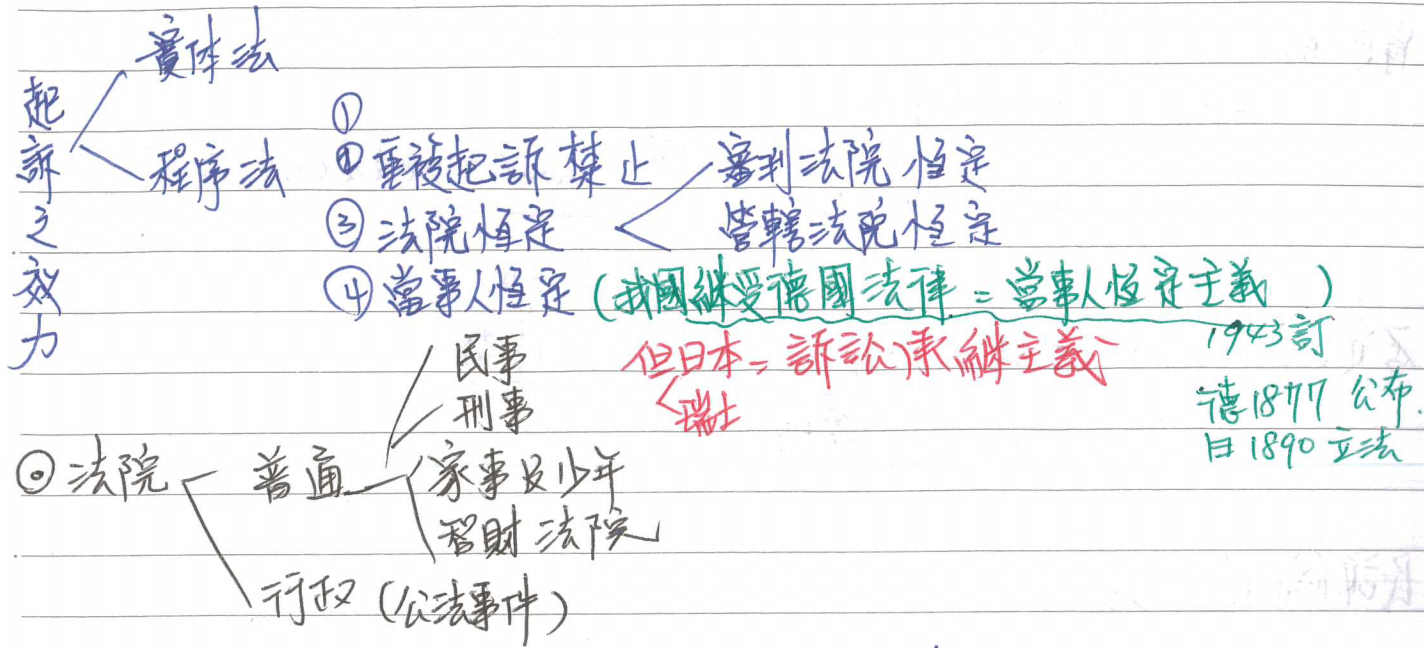 起訴之效力
實体法
程序法
①
② 重複起訴禁止
③ 法院恆定
審判法院恆定
管轄法院恆定
④ 當事人恆定 (我國繼受德國法律 = 當事人恆定主義)
1943訂
但日本 = 訴訟承繼主義
瑞士
德1877 公布.
日1890 立法
⊙ 法院
普通
民事
刑事
家事及少年
智財法院
行政 (公法事件)